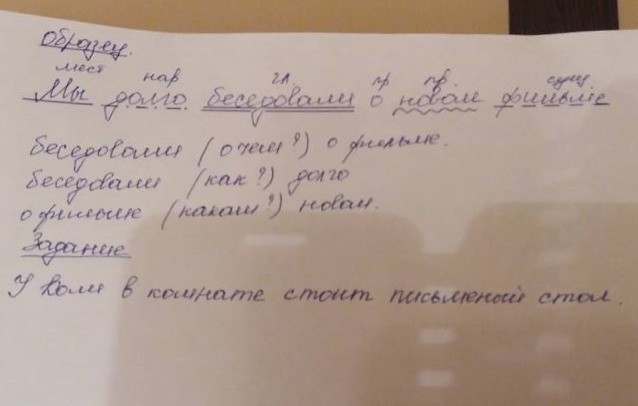 Образец.
мест нар гл. пр пр. сущ
Мы долго беседовали о новом фильме
беседовали (о чем?) о фильме.
беседовали (как?) долго
о фильме (каком?) новом.
Задание
У Коли в комнате стоит письменый стол.